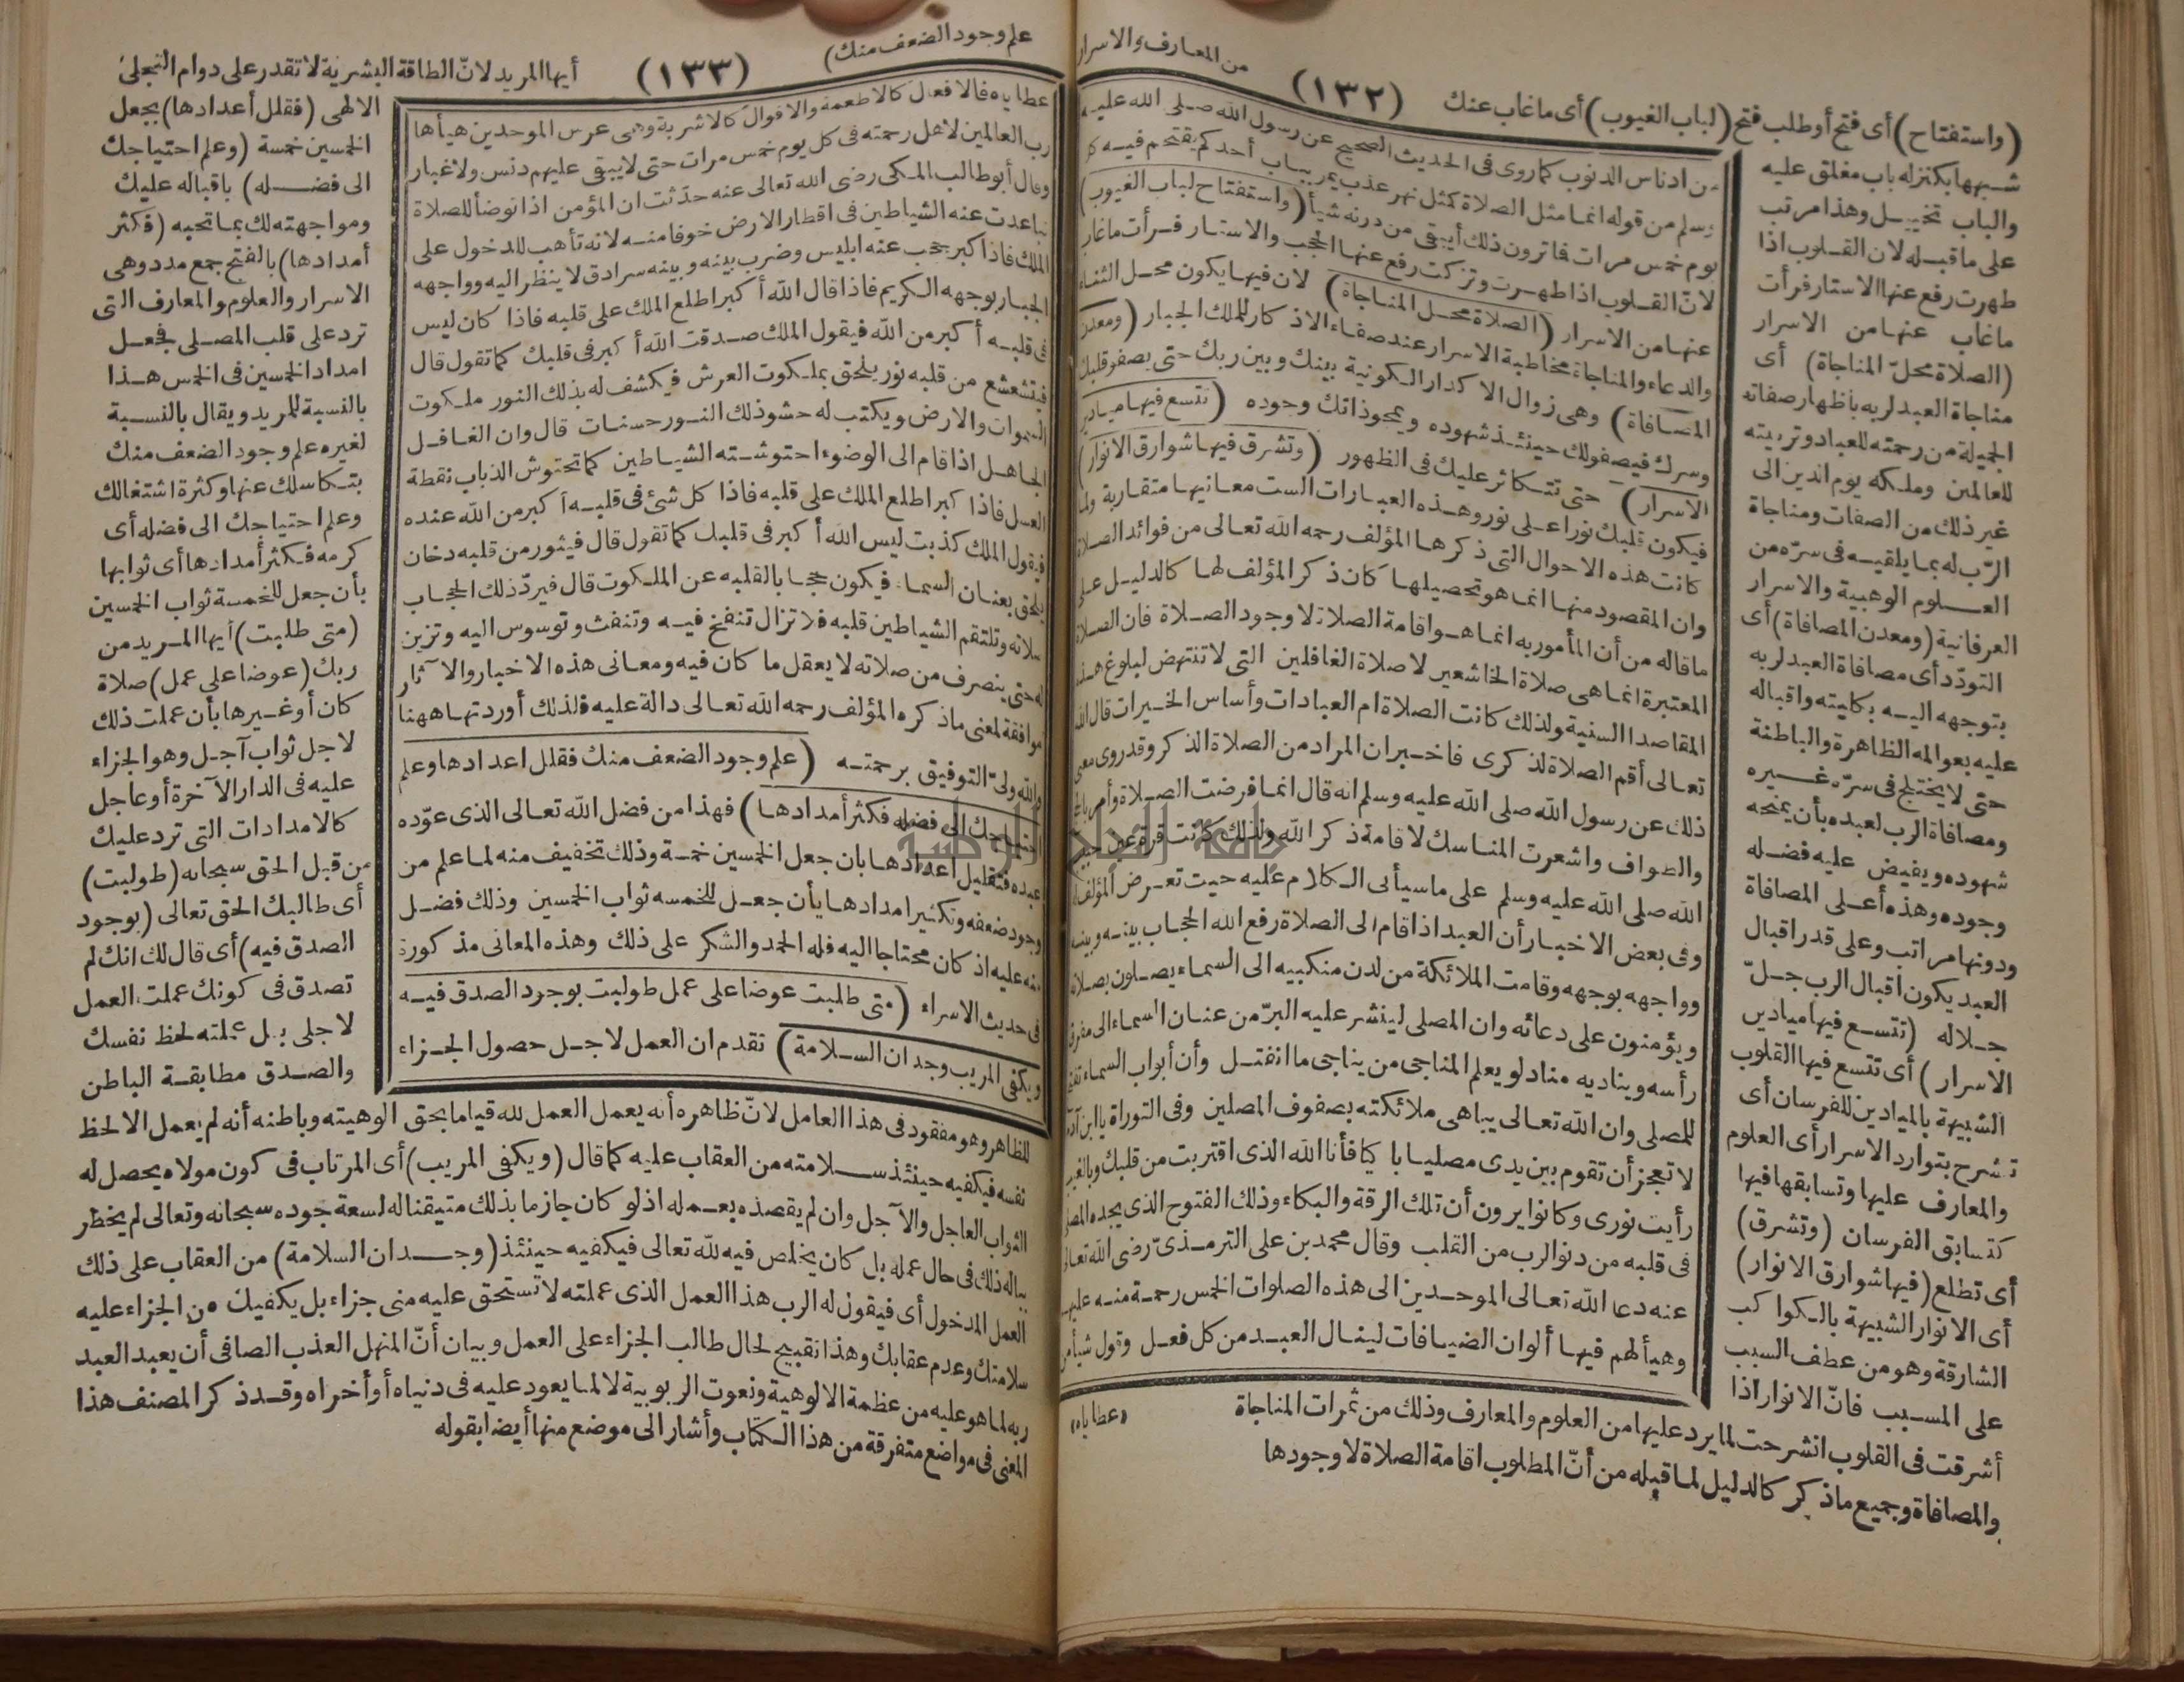 (واستفتاح) أى فتح أو طلب فتح (لباب الغيوب) أى ماغاب عنك
(١٣٢)
من المعارف والاسرار
شبهها بكنز له باب مغلق عليه
والباب تخييل وهذا مرتب
على ماقبله لان القلوب اذا
طهرت رفع عنها الاستار فرأت
ماغاب عنها من الاسرار
(الصلاة محلّ المناجاة) أى
مناجاة العبد لربه باظهار صفاته
الجميلة من رحمته للعباد وتربيته
للعالمين وملكه يوم الدين الى
غير ذلك من الصفات ومناجاة
الرّب له بما يلقيه فى سرّه من
العلوم الوهبية والاسرار
العرفانية (ومعدن المصافاة) أى
التودّد أى مصافاة العبد لربه
بتوجهه اليه بكليته واقباله
عليه بعوالمه الظاهرة والباطنة
حتى لا يختلج فى سرّه غيره
ومصافاة الرب لعبده بأن يمنحه
شهوده ويفيض عليه فضله
وجوده وهذه أعلى المصافاة
ودونها مراتب وعلى قدر اقبال
العبد يكون اقبال الرب جلّ
جلاله (تتسع فيها ميادين
الاسرار) أى تتسع فيها القلوب
الشبيهة بالميادين للفرسان أى
تشرح بتوارد الاسرار أى العلوم
والمعارف عليها وتسابقها فيها
كتسابق الفرسان (وتشرق)
أى تطلع (فيها شوارق الانوار)
أى الانوار الشبيهة بالكواكب
الشارقة وهو من عطف السبب
على المسبب فانّ الانوار اذا
أشرقت فى القلوب انشرحت لما يرد عليها من العلوم والمعارف وذلك من ثمرات المناجاة
والمصافاة وجميع ماذكر كالدليل لما قبله من أنّ المطلوب اقامة الصلاة لا وجودها
من ادناس الذنوب كما روى فى الحديث الصحيح عن رسول الله صلى الله عليه
وسلم من قوله انما مثل الصلاة كمثل نهر عذب يمر بباب أحدكم يقتحم فيه كل
يوم خمس مرات فاترون ذلك أيبقى من درنه شيأ (واستفتاح لباب الغيوب)
لانّ القلوب اذا طهرت وتزكت رفع عنها الحجب والاستار فرأت ماغاب
عنها من الاسرار (الصلاة محل المناجاة) لان فيها يكون محل الثناء
والدعاء والمناجاة مخاطبة الاسرار عند صفاء الاذكار للملك الجبار (ومعدن
المصافاة) وهى زوال الاكدار الكونية بينك وبين ربك حتى يصفو قلبك
وسرك فيصفو لك حينئذ شهوده ويمحو ذاتك وجوده (تتسع فيها ميادين
الاسرار) حتى تتكاثر عليك فى الظهور (وتشرق فيها شوارق الانوار)
فيكون قلبك نورا على نور وهذه العبارات الست معانيها متقاربة ولما
كانت هذه الاحوال التى ذكرها المؤلف رحمه الله تعالى من فوائد الصلاة
وان المقصود منها انما هو تحصيلها كان ذكر المؤلف لها كالدليل على
ماقاله من أن المأمور به انما هو اقامة الصلاة لا وجود الصلاة فان الصلاة
المعتبرة انما هى صلاة الخاشعين لا صلاة الغافلين التى لا تنتهض لبلوغ هذه
المقاصد السنية ولذلك كانت الصلاة ام العبادات وأساس الخيرات قال الله
تعالى أقم الصلاة لذكرى فاخبر ان المراد من الصلاة الذكر وقد روى معنى
ذلك عن رسول الله صلى الله عليه وسلم انه قال انما فرضت الصلاة وأمر بالحج
والطواف واشعرت المناسك لاقامة ذكر الله ولذلك كانت قرة عين
الله صلى الله عليه وسلم على ماسيأتى الكلام عليه حيث تعرض المؤلف له
وفى بعض الاخبار أن العبد اذا قام الى الصلاة رفع الله الحجاب بينه وبينه
وواجهه بوجهه وقامت الملائكة من لدن منكبيه الى السماء يصلون بصلاته
ويؤمنون على دعائه وان المصلى لينشر عليه البرّ من عنان السماء الى مفرق
رأسه ويناديه مناد لو يعلم المناجى من يناجى ما انفتل وأن أبواب السماء تفتح
للمصلى وان الله تعالى يباهى ملائكته بصفوف المصلين وفى التوراة يا ابن آدم
لا تعجز أن تقوم بين يدى مصليا باكيا فأنا الله الذى اقتربت من قلبك وبالغيب
رأيت نورى وكانوا يرون أن تلك الرقة والبكاء وذلك الفتوح الذى يجده المصلى
فى قلبه من دنو الرب من القلب وقال محمد بن على الترمذىّ رضى الله تعالى
عنه دعا الله تعالى الموحدين الى هذه الصلوات الخمس رحمة منه عليهم
وهيأ لهم فيها ألوان الضيافات لينال العبد من كل فعل وقول شيأ من
(عطاياه)
أيها المريد لانّ الطاقة البشرية لا تقدر على دوام التجلى
(١٣٣)
علم وجود الضعف منك)
الالهى (فقلل أعدادها) بجعل
الخمسين خمسة (وعلم احتياجك
الى فضله) باقباله عليك
ومواجهته لك بما تحبه (فكثر
أمدادها) بالفتح جمع مدد وهى
الاسرار والعلوم والمعارف التى
ترد على قلب المصلى فجعل
امداد الخمسين فى الخمس هذا
بالنسبة للمريد ويقال بالنسبة
لغيره علم وجود الضعف منك
بتكاسلك عنها وكثرة اشتغالك
وعلم احتياجك الى فضله أى
كرمه فكثر أمدادها أى ثوابها
بأن جعل للخمسة ثواب الخمسين
(متى طلبت) أيها المريد من
ربك (عوضا على عمل) صلاة
كان أو غيرها بأن عملت ذلك
لاجل ثواب آجل وهو الجزاء
عليه فى الدار الآخرة أو عاجل
كالامدادات التى ترد عليك
من قبل الحق سبحانه (طولبت)
أى طالبك الحق تعالى (بوجود
الصدق فيه) أى قال لك انك لم
تصدق فى كونك عملت العمل
لاجلى بل عملته لحظ نفسك
والصدق مطابقة الباطن
للظاهر وهو مفقود فى هذا العامل لانّ ظاهره أنه يعمل العمل لله قياما بحق الوهيته وباطنه أنه لم يعمل الا لحظ
نفسه فيكفيه حينئذ سلامته من العقاب عليه كما قال (ويكفى المريب) أى المرتاب فى كون مولاه يحصل له
الثواب العاجل والآجل وان لم يقصده بعمله اذ لو كان جازما بذلك متيقنا له لسعة جوده سبحانه وتعالى لم يخطر
بباله ذلك فى حال عمله بل كان يخلص فيه لله تعالى فيكفيه حينئذ (وجدان السلامة) من العقاب على ذلك
العمل المدخول أى فيقول له الرب هذا العمل الذى عملته لا تستحق عليه منى جزاء بل يكفيك من الجزاء عليه
سلامتك وعدم عقابك وهذا تقبيح لحال طالب الجزاء على العمل وبيان أنّ المنهل العذب الصافى أن يعبد العبد
ربه لما هو عليه من عظمة الالوهية ونعوت الربوبية لا لما يعود عليه فى دنياه أو أخراه وقد ذكر المصنف هذا
المعنى فى مواضع متفرقة من هذا الكتاب وأشار الى موضع منها أيضا بقوله
عطاياه فالافعال كالاطعمة والاقوال كالاشربة وهى عرس الموحدين هيأها
رب العالمين لاهل رحمته فى كل يوم خمس مرات حتى لا يبقى عليهم دنس ولا غبار
وقال أبو طالب المكى رضى الله تعالى عنه حدّثت ان المؤمن اذا توضأ للصلاة
تباعدت عنه الشياطين فى اقطار الارض خوفا منه لانه تأهب للدخول على
الملك فاذا كبر حجب عنه ابليس وضرب بينه وبينه سرادق لا ينظر اليه وواجهه
الجبار بوجهه الكريم فاذا قال الله أكبر اطلع الملك على قلبه فاذا كان ليس
فى قلبه أكبر من الله فيقول الملك صدقت الله أكبر فى قلبك كما تقول قال
فيتشعشع من قلبه نور يلحق بملكوت العرش فيكشف له بذلك النور ملكوت
السموات والارض ويكتب له حشو ذلك النور حسنات قال وان الغافل
الجاهل اذا قام الى الوضوء احتوشته الشياطين كما تحتوش الذباب نقطة
العسل فاذا كبر اطلع الملك على قلبه فاذا كل شئ فى قلبه أكبر من الله عنده
فيقول الملك كذبت ليس الله أكبر فى قلبك كما تقول قال فيثور من قلبه دخان
يلحق بعنان السماء فيكون حجابا لقلبه عن الملكوت قال فيردّ ذلك الحجاب
صلاته وتلتقم الشياطين قلبه فلا تزال تنفخ فيه وتنفث وتوسوس اليه وتزين
له حتى ينصرف من صلاته لا يعقل ما كان فيه ومعانى هذه الاخبار والآثار
موافقة لمعنى ماذكره المؤلف رحمه الله تعالى دالة عليه فلذلك أوردتها ههنا
والله ولىّ التوفيق برحمته (علم وجود الضعف منك فقلل اعدادها وعلم
احتياجك الى فضله فكثر أمدادها) فهذا من فضل الله تعالى الذى عوّده
عبده فتقليل أعدادها بان جعل الخمسين خمسة وذلك تخفيف منه لما علم من
وجود ضعفه وتكثير امدادها بأن جعل للخمسه ثواب الخمسين وذلك فضل
منه عليه اذ كان محتاجا اليه فله الحمد والشكر على ذلك وهذه المعانى مذكورة
فى حديث الاسراء (متى طلبت عوضا على عمل طولبت بوجود الصدق فيه
ويكفى المريب وجدان السلامة) تقدم ان العمل لاجل حصول الجزاء
جامعة النجاح الوطنية